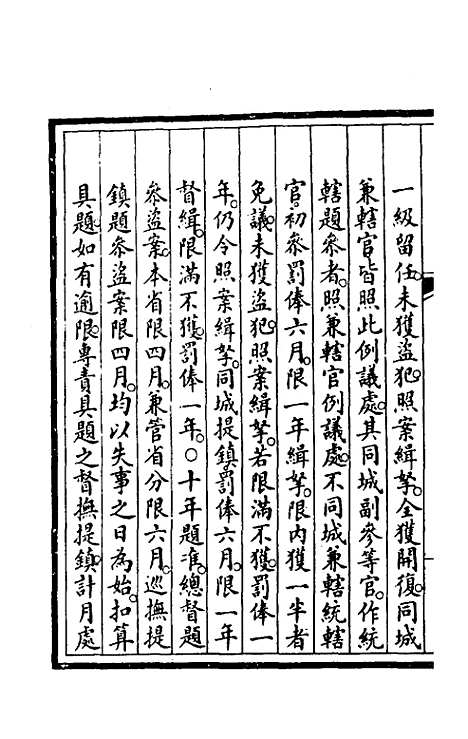 一級留任。未獲盜犯。照案緝拏。全獲開復。同城
兼轄官皆照此例議處。其同城副參等官。作統
轄題參者。照兼轄官例議處。不同城兼轄統轄
官。初參罰俸六月。限一年緝拏。限內獲一半者
免議。未獲盜犯。照案緝拏。若限滿不獲。罰俸一
年。仍令照案緝拏。同城提鎮。罰俸六月。限一年
督緝。限滿不獲。罰俸一年。○十年題准。總督題
參盜案。本省限四月。兼管省分限六月。巡撫提
鎮題參盜案限四月。均以失事之日為始。扣算
具題。如有逾限。專責具題之督撫提鎮。計月處